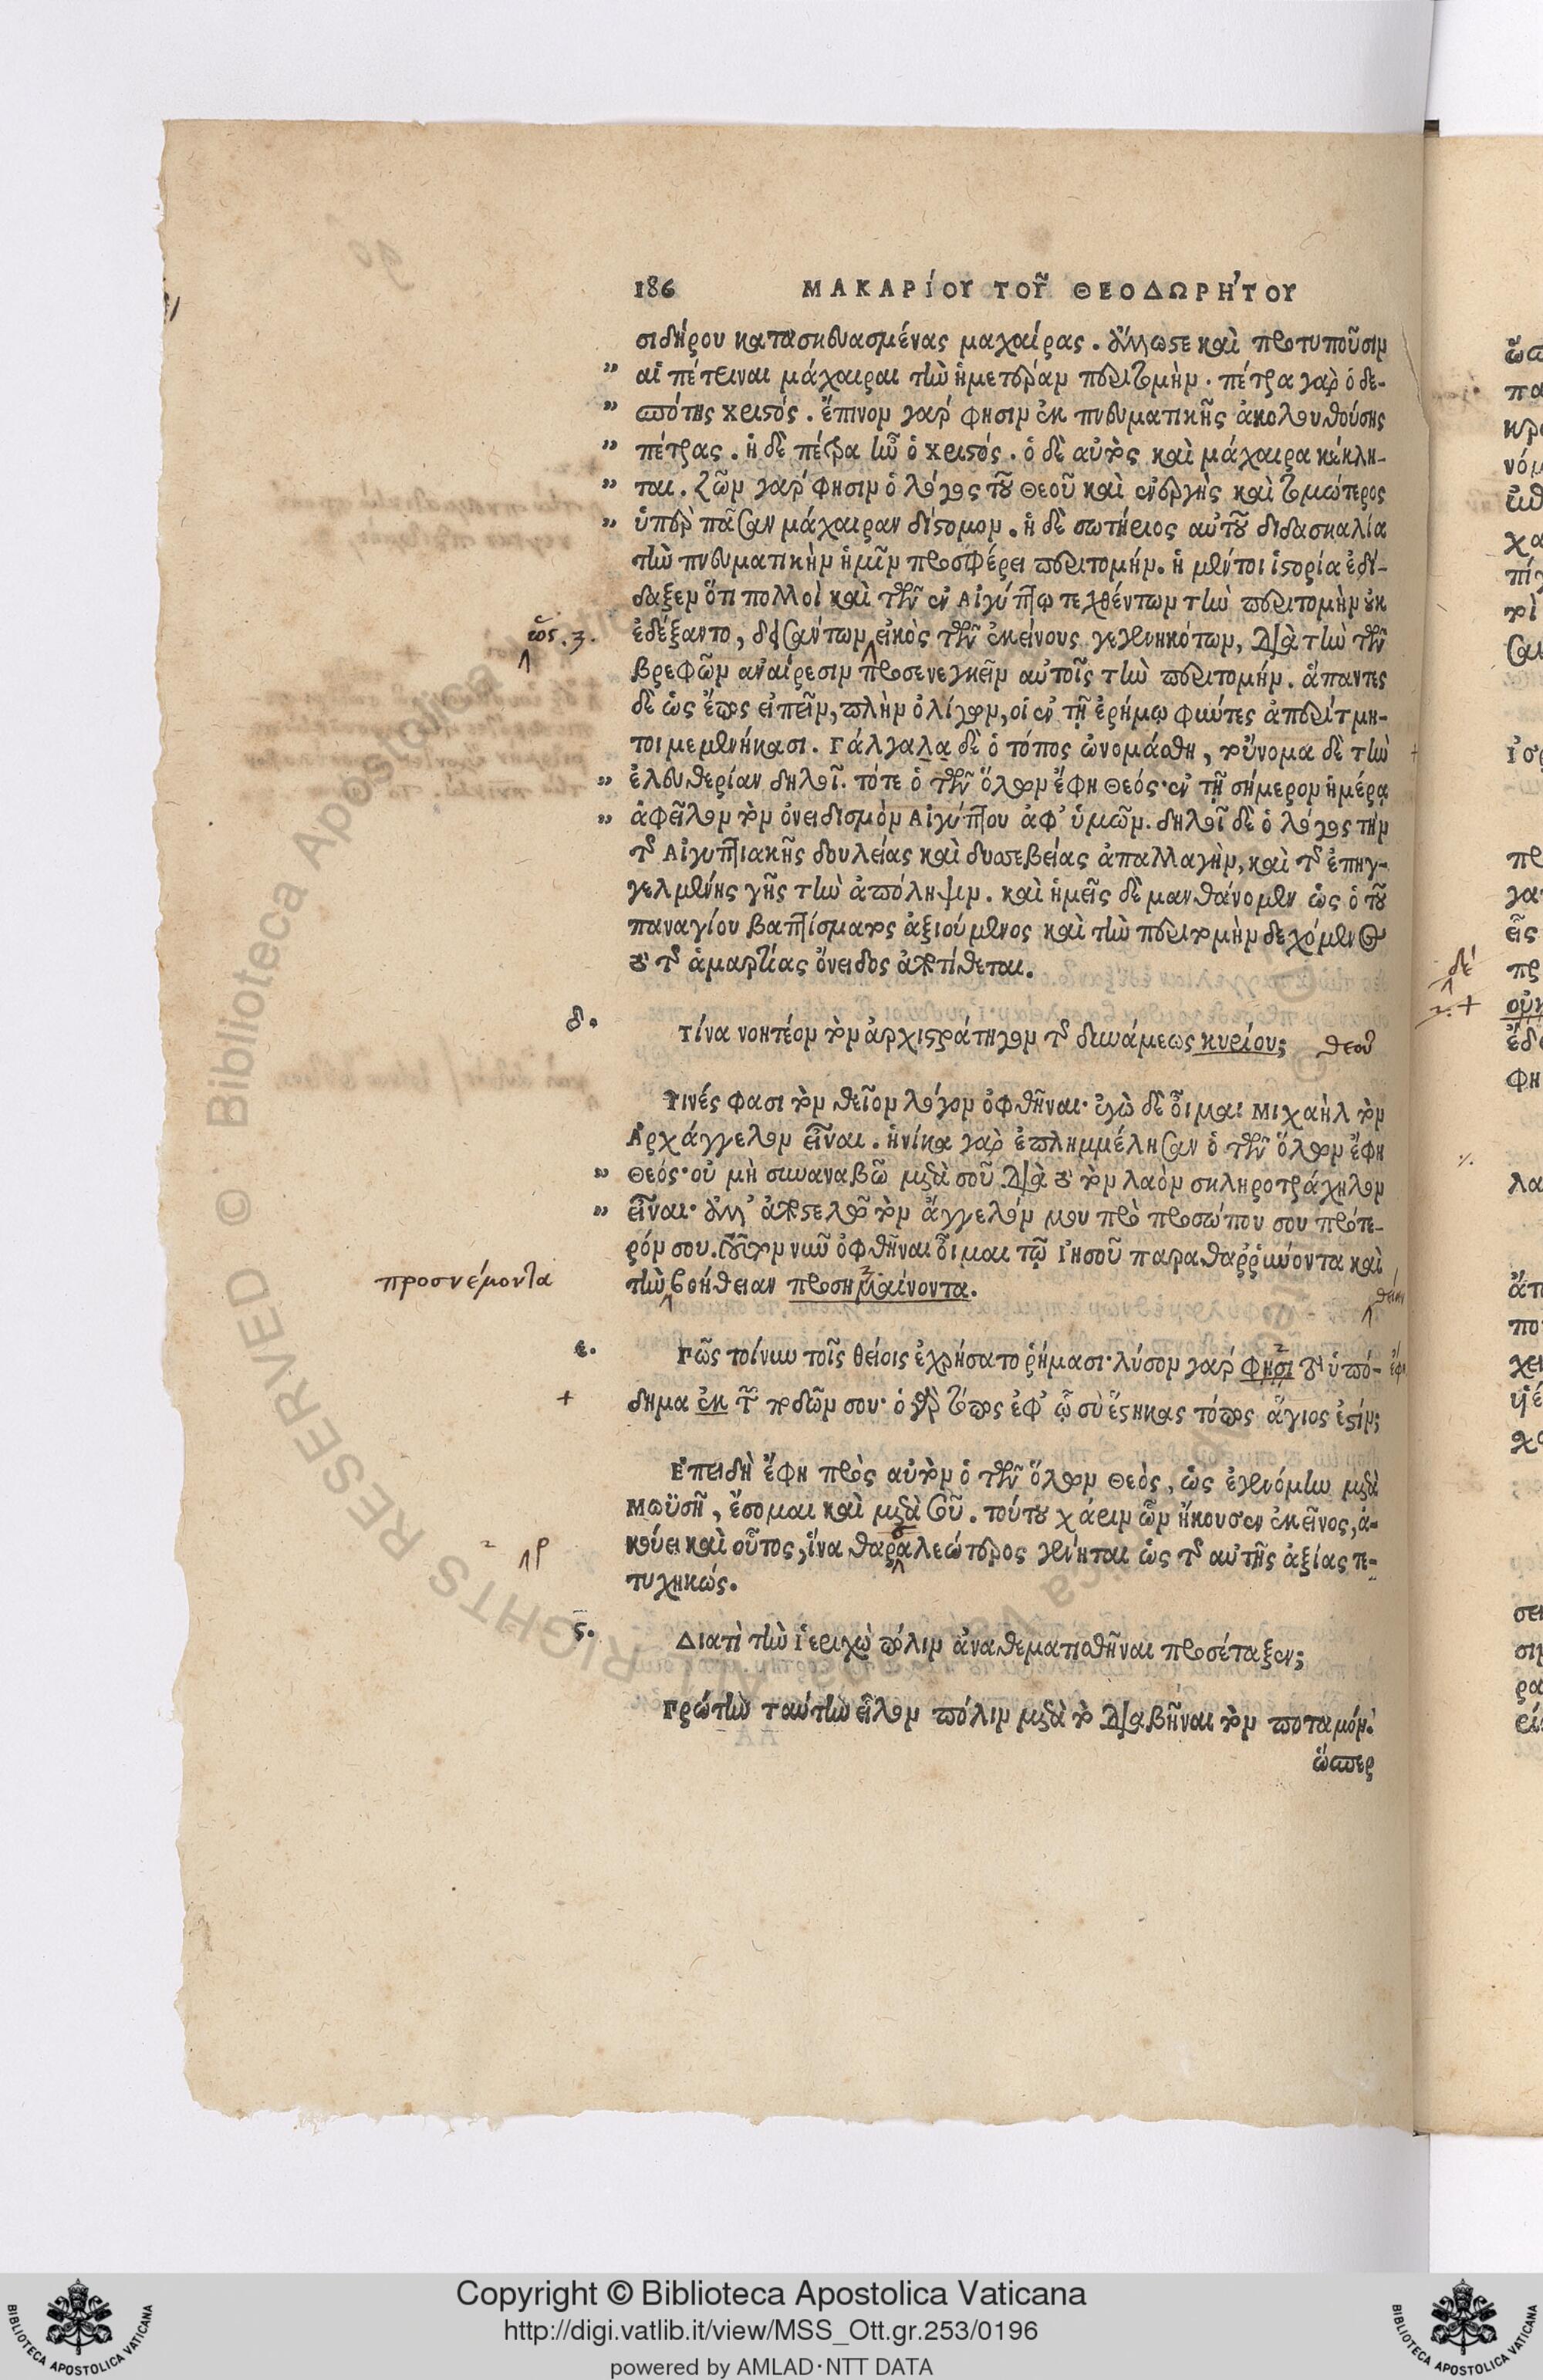 186 ΜΑΚΑΡίΟΥ ΤΟΥ͂ ΘΕΟΔΩΡΉΤΟΥ
σιδήρου κατασκευασμένας μαχαίρας. ἄλλωστε καὶ προτυποῦσιν
„ αἱ πέτριναι μάχαιραι τὴν ἡμετέραν περιτομὴν. πέτρα γὰρ ὁ δε-
„ σπότης χριστός. ἔπινον γάρ φησιν ἐκ πνευματικῆς ἀκολουθούσης
„ πέτρας. ἡ δὲ πέτρα ἦν ὁ χριστός. ὁ δὲ αὐτὸς καὶ μάχαιρα κέκλη-
„ ται. ζῶν γάρ φησιν ὁ λόγος τοῦ Θεοῦ καὶ ἐνεργὴς καὶ τομώτερος
„ ὑπὲρ πᾶσαν μάχαιραν δίστομον. ἡ δὲ σωτήριος αὐτοῦ διδασκαλία
τὴν πνευματικὴν ἡμῖν προσφέρει περιτομήν. ἡ μέντοι ἱστορία ἐδί-
δαξεν ὅτι πολλοὶ καὶ τῶν ἐν Αἰγύπτῳ τεχθέντων τὴν περιτομὴν οὐκ
ἐδέξαντο, δεισάντων εἰκὸς τῶν ἐκείνους γεγεννηκότων, διὰ τὴν τῶν
βρεφῶν ἀναίρεσιν προσενεγκεῖν αὐτοῖς τὴν περιτομήν. ἅπαντες
δὲ ὡς ἔπος εἰπεῖν, πλὴν ὀλίγων, οἱ ἐν τῇ ἐρήμῳ φύντες ἀπερίτμη-
τοι μεμενήκασι. Γάλγαλα δὲ ὁ τόπος ὠνομάσθη, τοὔνομα δὲ τὴν
„ ἐλευθερίαν δηλοῖ. τότε ὁ τῶν ὅλων ἔφη Θεός· ἐν τῇ σήμερον ἡμέρᾳ
„ ἀφεῖλον τὸν ὀνειδισμὸν Αἰγύπτου ἀφ’ ὑμῶν. δηλοῖ δὲ ὁ λόγος τὴν
τῆς Αἰγυπτιακῆς δουλείας καὶ δυσσεβείας ἀπαλλαγὴν, καὶ τῆς ἐπηγ-
γελμένης γῆς τὴν ἀπόληψιν. καὶ ἡμεῖς δὲ μανθάνομεν ὡς ὁ τοῦ
παναγίου βαπτίσματος ἀξιούμενος καὶ τὴν περιτομὴν δεχόμενος
τὸ τῆς ἁμαρτίας ὄνειδος ἀποτίθεται.
δ. Τίνα νοητέον τὸν ἀρχιστράτηγον τῆς δυνάμεως κυρίου; θεοῦ
Τινές φασι τὸν θεῖον λόγον ὀφθῆναι· ἐγὼ δὲ οἶμαι Μιχαὴλ τὸν
Ἀρχάγγελον εἶναι. ἡνίκα γὰρ ἐπλημμέλησαν ὁ τῶν ὅλων ἔφη
„ Θεός· οὐ μὴ συναναβῶ μετὰ σοῦ διὰ τὸ τὸν λαὸν σκληροτράχηλον
„ εἶναι· ἀλλ’ ἀποστελῶ τὸν ἄγγελόν μου πρὸ προσώπου σου πρότε-
ρόν σου. τοῦτον νῦν ὀφθῆναι οἶμαι τῷ Ἰησοῦ παραθαῤῥύνοντα καὶ
τὴν βοήθειαν προσημαίνοντα.
προσνέμοντα
ε. Πῶς τοίνυν τοῖς θείοις ἐχρήσατο ῥήμασι· λύσον γάρ φησι τὸ ὑπό-
+ δημα ἐκ τῶν ποδῶν σου· ὁ γὰρ τόπος ἐφ’ ᾧ σὺ ἕστηκας τόπος ἅγιος ἐστίν;
Ἐπειδὴ ἔφη πρὸς αὐτὸν ὁ τῶν ὅλων Θεὸς, ὡς ἐγενόμην μετὰ
Μωϋσῆ, ἔσομαι καὶ μετὰ σοῦ. τούτου χάριν ὧν ἤκουσεν ἐκεῖνος, ἀ-
κούει καὶ οὗτος, ἵνα θαραλεώτερος γένηται ὡς τῆς αὐτῆς ἀξίας τε-
τυχηκώς.
ϛ. Διατὶ τὴν Ἱεριχὼ πόλιν ἀναθεματισθῆναι προσέταξεν;
Πρώτην ταύτην εἷλον πόλιν μετὰ τὸ διαβῆναι τὸν ποταμόν.
ὥσπερ
Copyright © Biblioteca Apostolica Vaticana
http://digi.vatlib.it/view/MSS_Ott.gr.253/0196
powered by AMLAD·NTT DATA